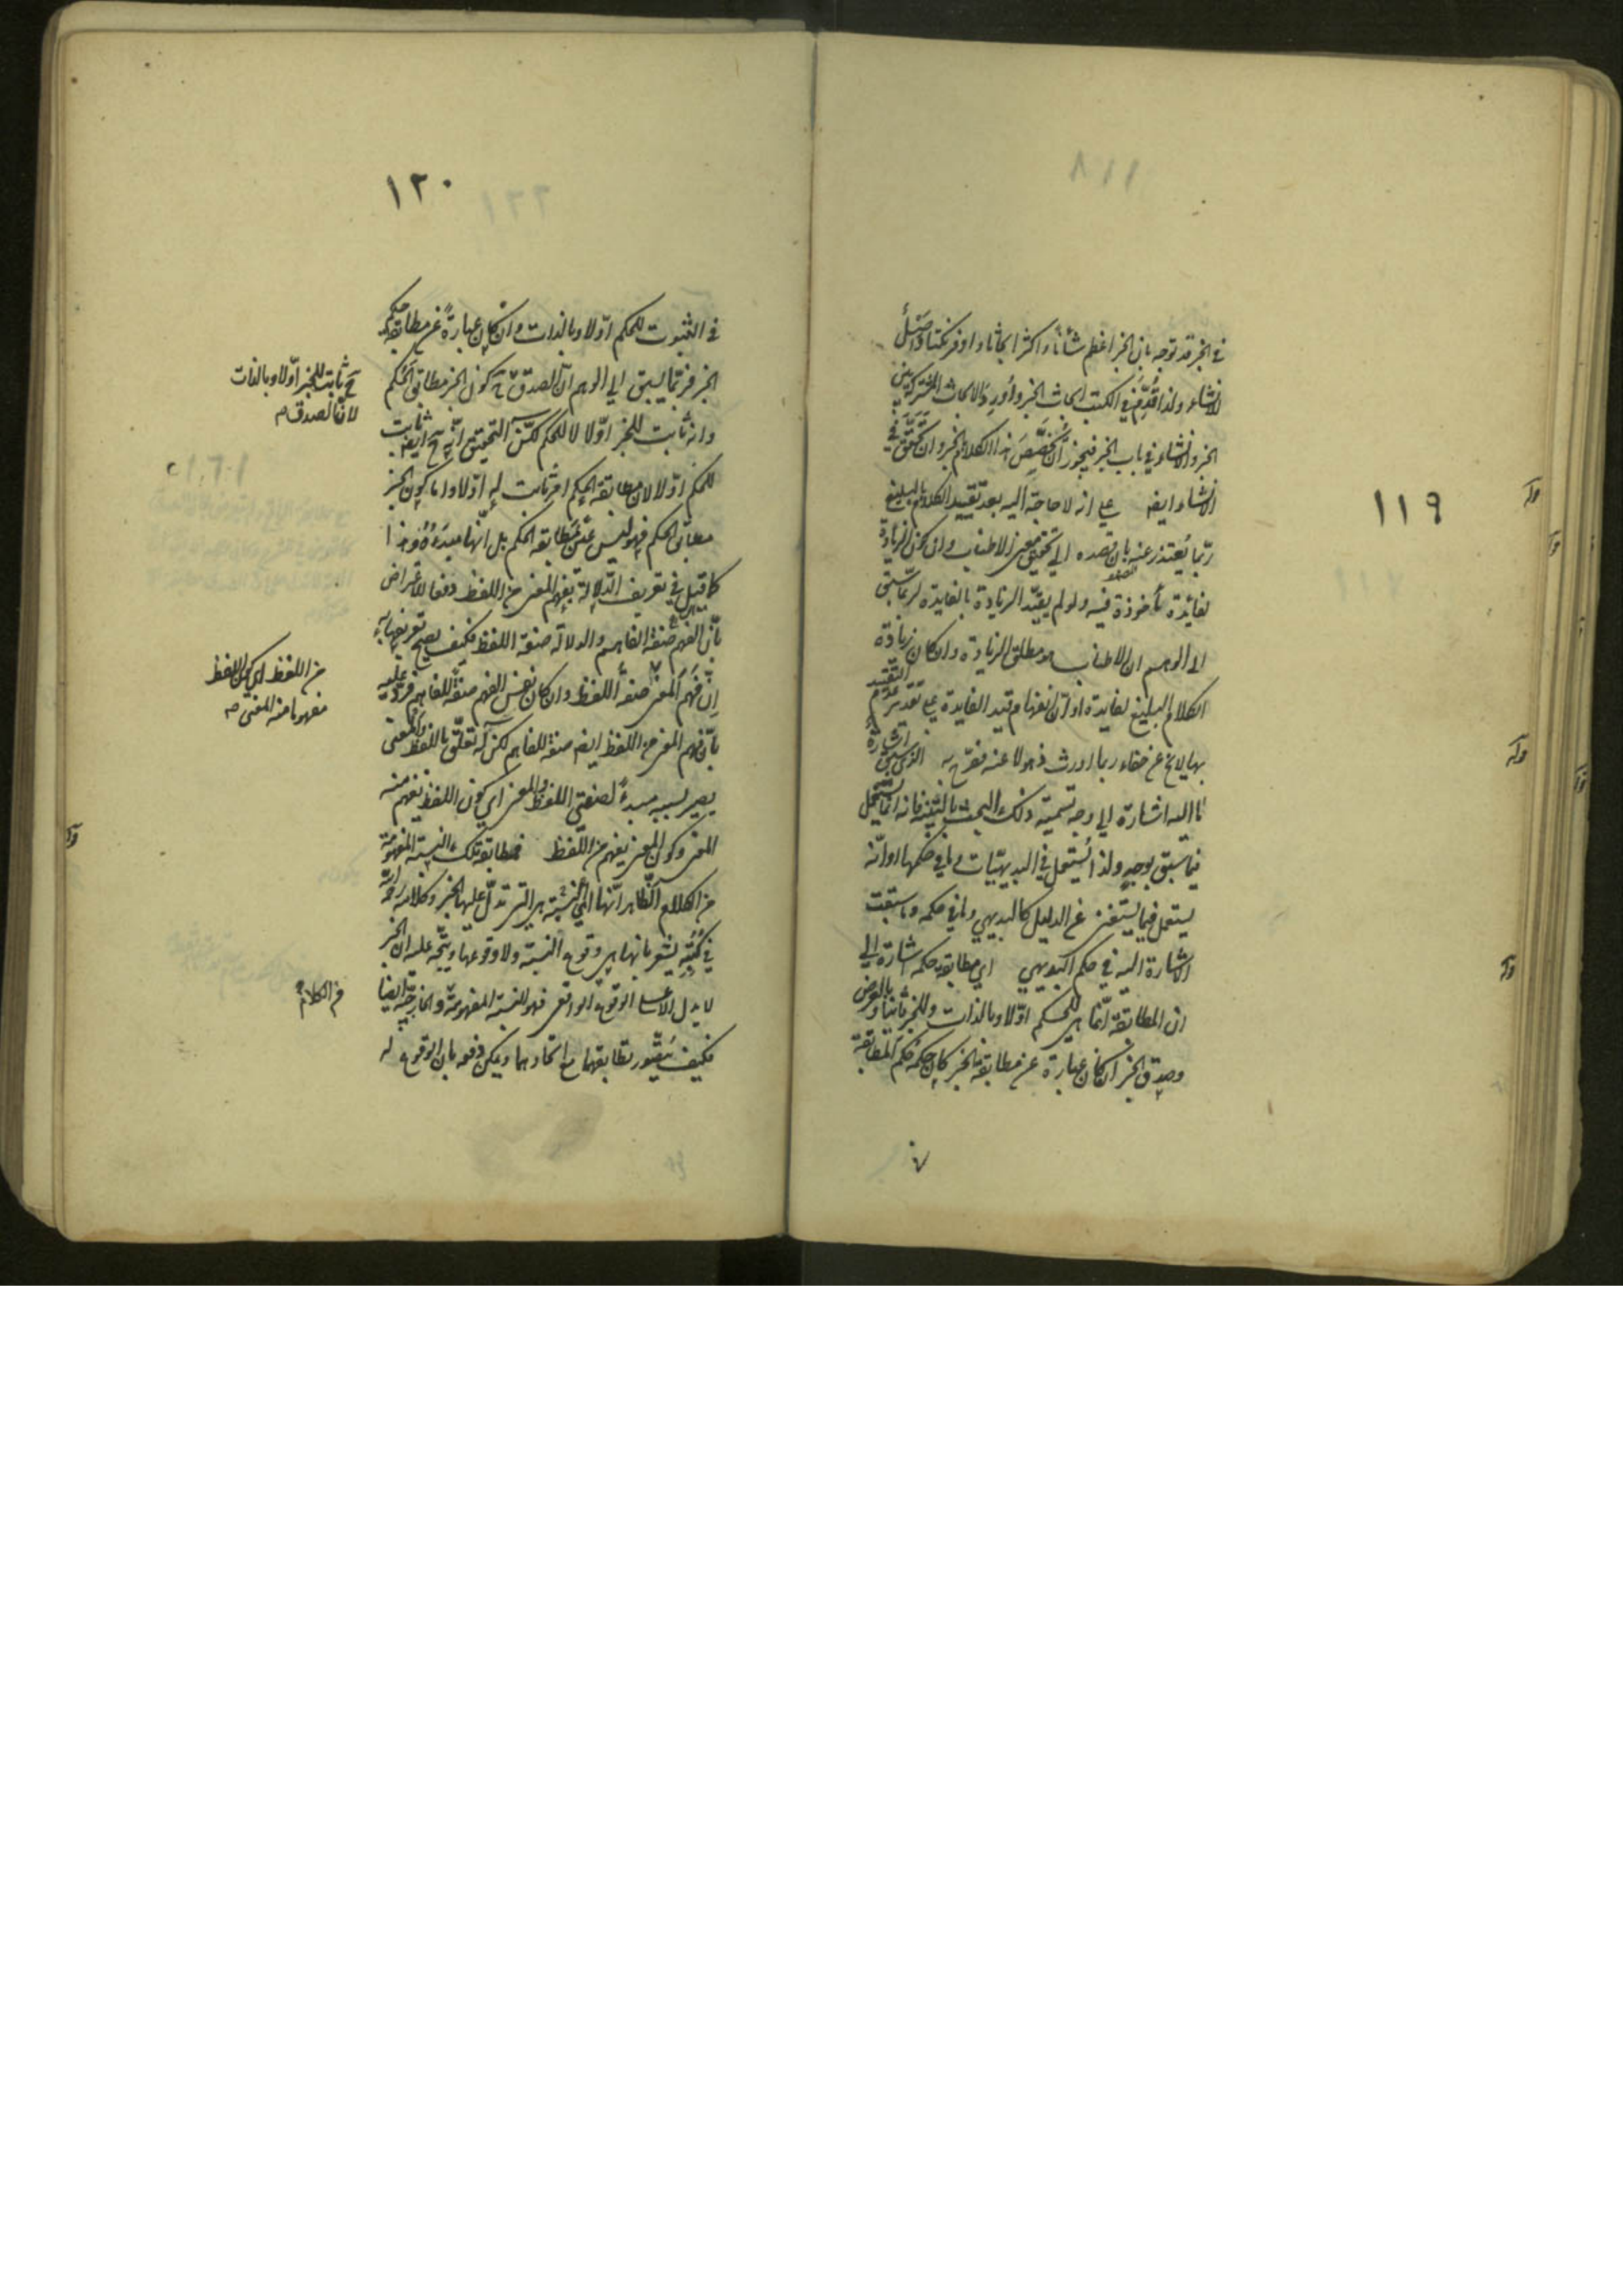 ١١٩
في الخبر قد توجه بان الخبر اعظم شأنا واكثر ابحاثا واوفر نكتا واصل
للانشاء ولذا قدم في الكتب ابحاث الخبر واورد الابحاث المشتركة بين
الخبر والانشاء في باب الخبر فيجوز ان تخصيص هذا الكلام بالخبر وان تحقق في
الانشاء ايضا على انه لا حاجة اليه بعد تقييد الكلام بالبليغ
ربما يعتذر عنه بان قصده الى تحقيق معنى الاطناب وان كون الزيادة
لفائدة مأخوذة فيه ولو لم يقيد الزيادة بالفايدة لربما سبق
الى الوهم ان الاطناب هو مطلق الزيادة وان كان زيادة
الكلام البليغ لفايدة او ان انفهام قيد الفايدة على تقدير عدم التقييد
بها لا يخ عن خفاء ربما اورث ذهولا عنه فصرح به الذي سبق اشارة
ما اليه اشارة الى وجه تسمية ذلك البحث بالتنبيه فانه انما يستعمل
فيما سبق بوجه ولذا يستعمل في البديهيات وما في حكمها او انه
يستعمل فيما يستغنى عن الدليل كالبديهي وما في حكمه وما سبقت
الاشارة اليه في حكم البديهي اي مطابقة حكمه اشارة الى
ان المطابقة انما هي للحكم اولا وبالذات وللخبر ثانيا وبالعرض
وصدق الخبر ان كان عبارة عن مطابقة الخبر كان حكمه حكم المطابقة
١٢٠
في الثبوت للحكم اولا وبالذات وان كان عبارة عن مطابقة حكم
الخبر فربما يسبق الى الوهم ان الصدق ح كون الخبر مطابق الحكم
وانه ثابت للخبر اولا لا للحكم لكن التحقيق انه ح ايضا ثابت
للحكم اولا لان مطابقة الحكم امر ثابت له اولا واما كون الخبر
مطابق الحكم فهو ليس عين مطابقة الحكم بل انها مبدءه وهذا
كما قيل في تعريف الدلالة بفهم المعنى من اللفظ دفعا لاعتراض
بان الفهم صفة الفاهم والدلالة صفة اللفظ فكيف يصح تعريفها به
ان فهم المعنى صفة اللفظ وان كان نفس الفهم صفة للفاهم فرد عليه
بان فهم المعنى من اللفظ ايضا صفة للفاهم لكن له تعلق باللفظ والمعنى
يصير بسببه مبدء لصفتي اللفظ والمعنى اي كون اللفظ يفهم منه
المعنى وكون المعنى يفهم من اللفظ فمطابقة تلك النسبة المفهومة
من الكلام الظاهر انها اي النسبة هي التي تدل عليها الخبر وكلامه
في كتبه يشعر بانها هي وقوع النسبة ولا وقوعها ويتجه عليه ان الخبر
لا يدل الا على الوقوع الواقعي فهو النسبة المفهومة والخارجية ايضا
فكيف يتصور تطابقهما مع اتحادهما ويمكن دفعه بان الوقوع له
ح ثابت للخبر اولا وبالذات
لان الصدق
من اللفظ اي كون اللفظ
مفهوما منه المعنى
من الكلام